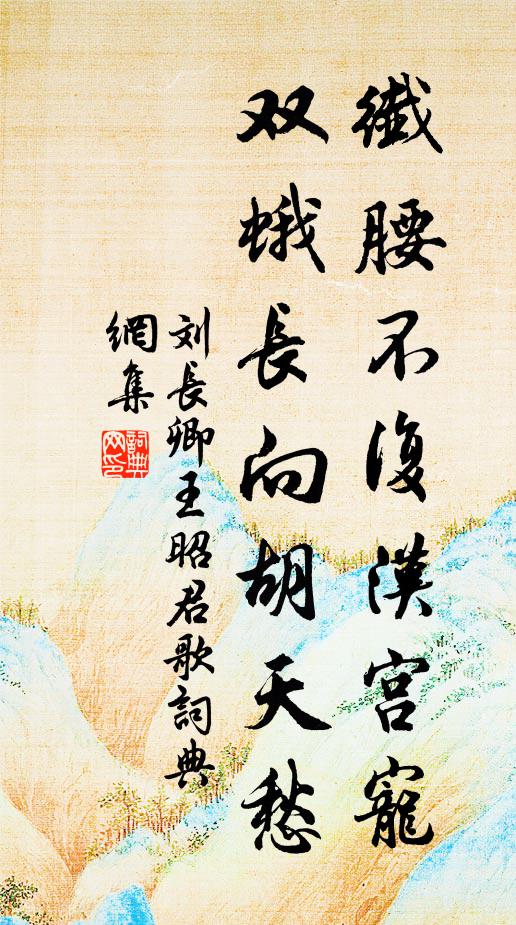 纖腰不復漢宮寵
双蛾長向胡天愁
刘長卿王昭君歌詞典
網集
詞典網印